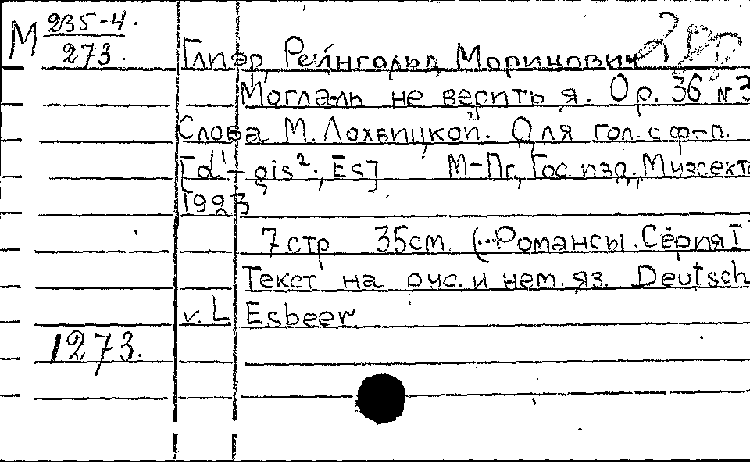 М 235-4.
273.
Глиэр, Рейнгольд Морицович
Могла ль не верить я. Op. 36 №3
Слова М. Лохвицкой. Для гол. с ф-п.
[d'- gis²; Es] М-Пг, Гос изд., Музсект
1923
7 стр 35см. (…Романсы. Серия I
Текст на рус. и нем. яз. Deutsch
v. L Esbeer
1273.